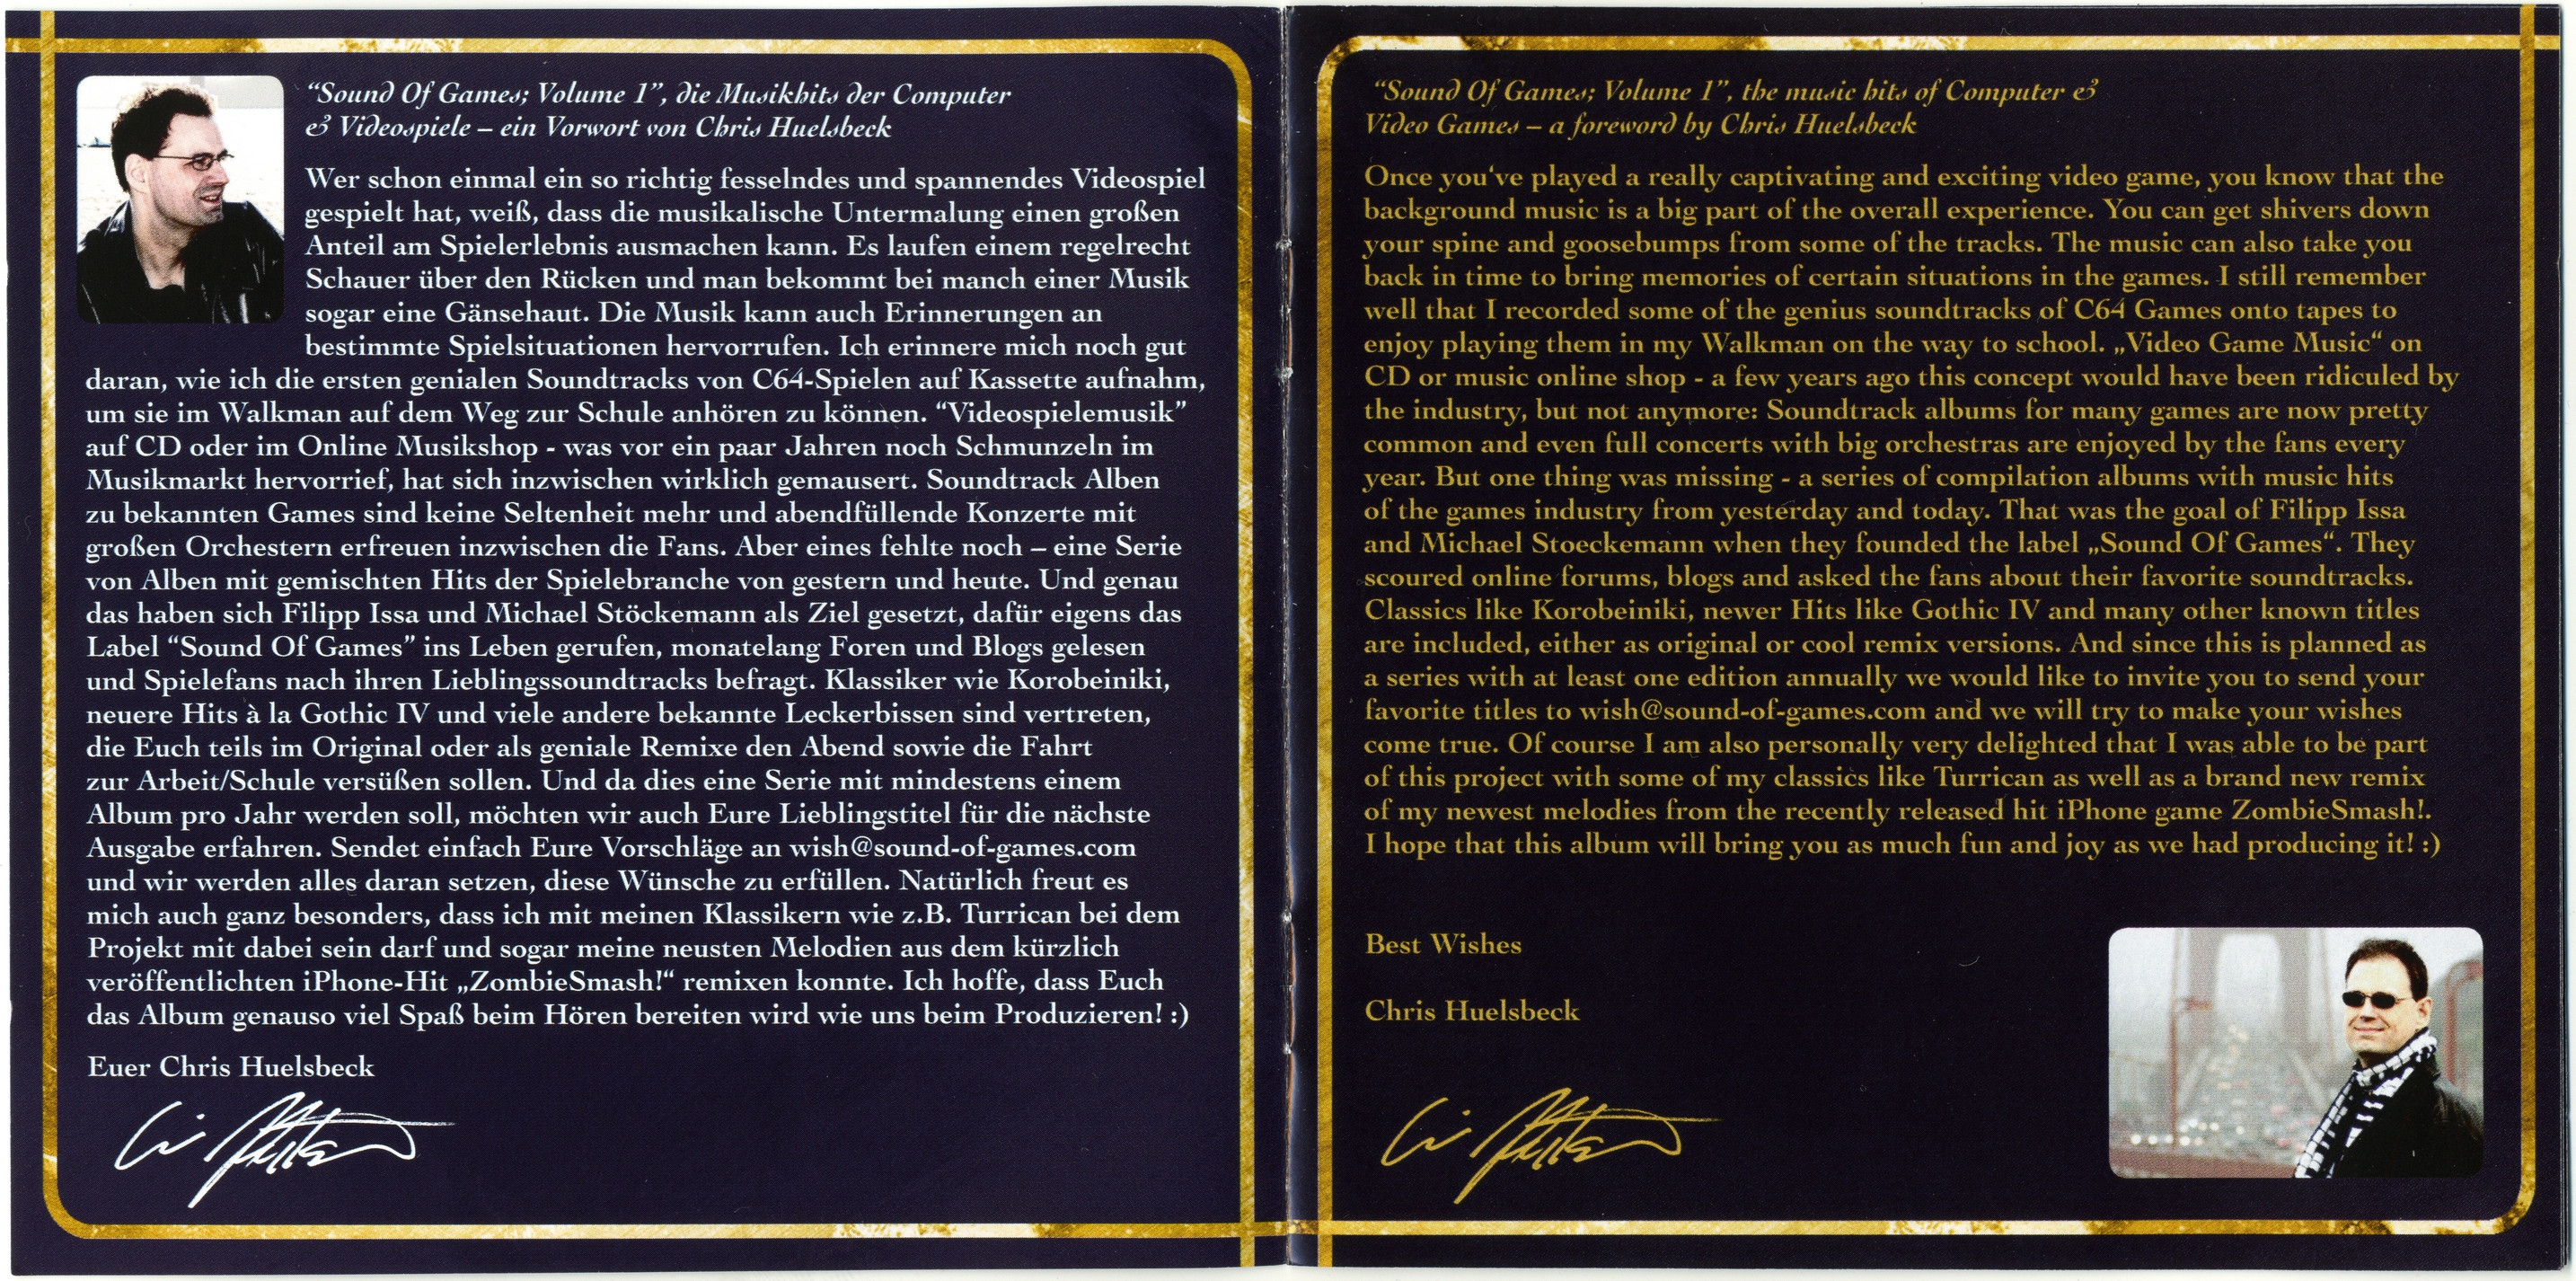 “Sound Of Games; Volume 1”, die Musikhits der Computer
& Videospiele – ein Vorwort von Chris Huelsbeck
Wer schon einmal ein so richtig fesselndes und spannendes Videospiel
gespielt hat, weiß, dass die musikalische Untermalung einen großen
Anteil am Spielerlebnis ausmachen kann. Es laufen einem regelrecht
Schauer über den Rücken und man bekommt bei manch einer Musik
sogar eine Gänsehaut. Die Musik kann auch Erinnerungen an
bestimmte Spielsituationen hervorrufen. Ich erinnere mich noch gut
daran, wie ich die ersten genialen Soundtracks von C64-Spielen auf Kassette aufnahm,
um sie im Walkman auf dem Weg zur Schule anhören zu können. “Videospielemusik”
auf CD oder im Online Musikshop - was vor ein paar Jahren noch Schmunzeln im
Musikmarkt hervorrief, hat sich inzwischen wirklich gemausert. Soundtrack Alben
zu bekannten Games sind keine Seltenheit mehr und abendfüllende Konzerte mit
großen Orchestern erfreuen inzwischen die Fans. Aber eines fehlte noch – eine Serie
von Alben mit gemischten Hits der Spielebranche von gestern und heute. Und genau
das haben sich Filipp Issa und Michael Stöckemann als Ziel gesetzt, dafür eigens das
Label “Sound Of Games” ins Leben gerufen, monatelang Foren und Blogs gelesen
und Spielefans nach ihren Lieblingssoundtracks befragt. Klassiker wie Korobeiniki,
neuere Hits à la Gothic IV und viele andere bekannte Leckerbissen sind vertreten,
die Euch teils im Original oder als geniale Remixe den Abend sowie die Fahrt
zur Arbeit/Schule versüßen sollen. Und da dies eine Serie mit mindestens einem
Album pro Jahr werden soll, möchten wir auch Eure Lieblingstitel für die nächste
Ausgabe erfahren. Sendet einfach Eure Vorschläge an wish@sound-of-games.com
und wir werden alles daran setzen, diese Wünsche zu erfüllen. Natürlich freut es
mich auch ganz besonders, dass ich mit meinen Klassikern wie z.B. Turrican bei dem
Projekt mit dabei sein darf und sogar meine neusten Melodien aus dem kürzlich
veröffentlichten iPhone-Hit „ZombieSmash!“ remixen konnte. Ich hoffe, dass Euch
das Album genauso viel Spaß beim Hören bereiten wird wie uns beim Produzieren! :)
Euer Chris Huelsbeck
“Sound Of Games; Volume 1”, the music hits of Computer &
Video Games – a foreword by Chris Huelsbeck
Once you‘ve played a really captivating and exciting video game, you know that the
background music is a big part of the overall experience. You can get shivers down
your spine and goosebumps from some of the tracks. The music can also take you
back in time to bring memories of certain situations in the games. I still remember
well that I recorded some of the genius soundtracks of C64 Games onto tapes to
enjoy playing them in my Walkman on the way to school. „Video Game Music“ on
CD or music online shop - a few years ago this concept would have been ridiculed by
the industry, but not anymore: Soundtrack albums for many games are now pretty
common and even full concerts with big orchestras are enjoyed by the fans every
year. But one thing was missing - a series of compilation albums with music hits
of the games industry from yesterday and today. That was the goal of Filipp Issa
and Michael Stoeckemann when they founded the label „Sound Of Games“. They
scoured online forums, blogs and asked the fans about their favorite soundtracks.
Classics like Korobeiniki, newer Hits like Gothic IV and many other known titles
are included, either as original or cool remix versions. And since this is planned as
a series with at least one edition annually we would like to invite you to send your
favorite titles to wish@sound-of-games.com and we will try to make your wishes
come true. Of course I am also personally very delighted that I was able to be part
of this project with some of my classics like Turrican as well as a brand new remix
of my newest melodies from the recently released hit iPhone game ZombieSmash!.
I hope that this album will bring you as much fun and joy as we had producing it! :)
Best Wishes
Chris Huelsbeck